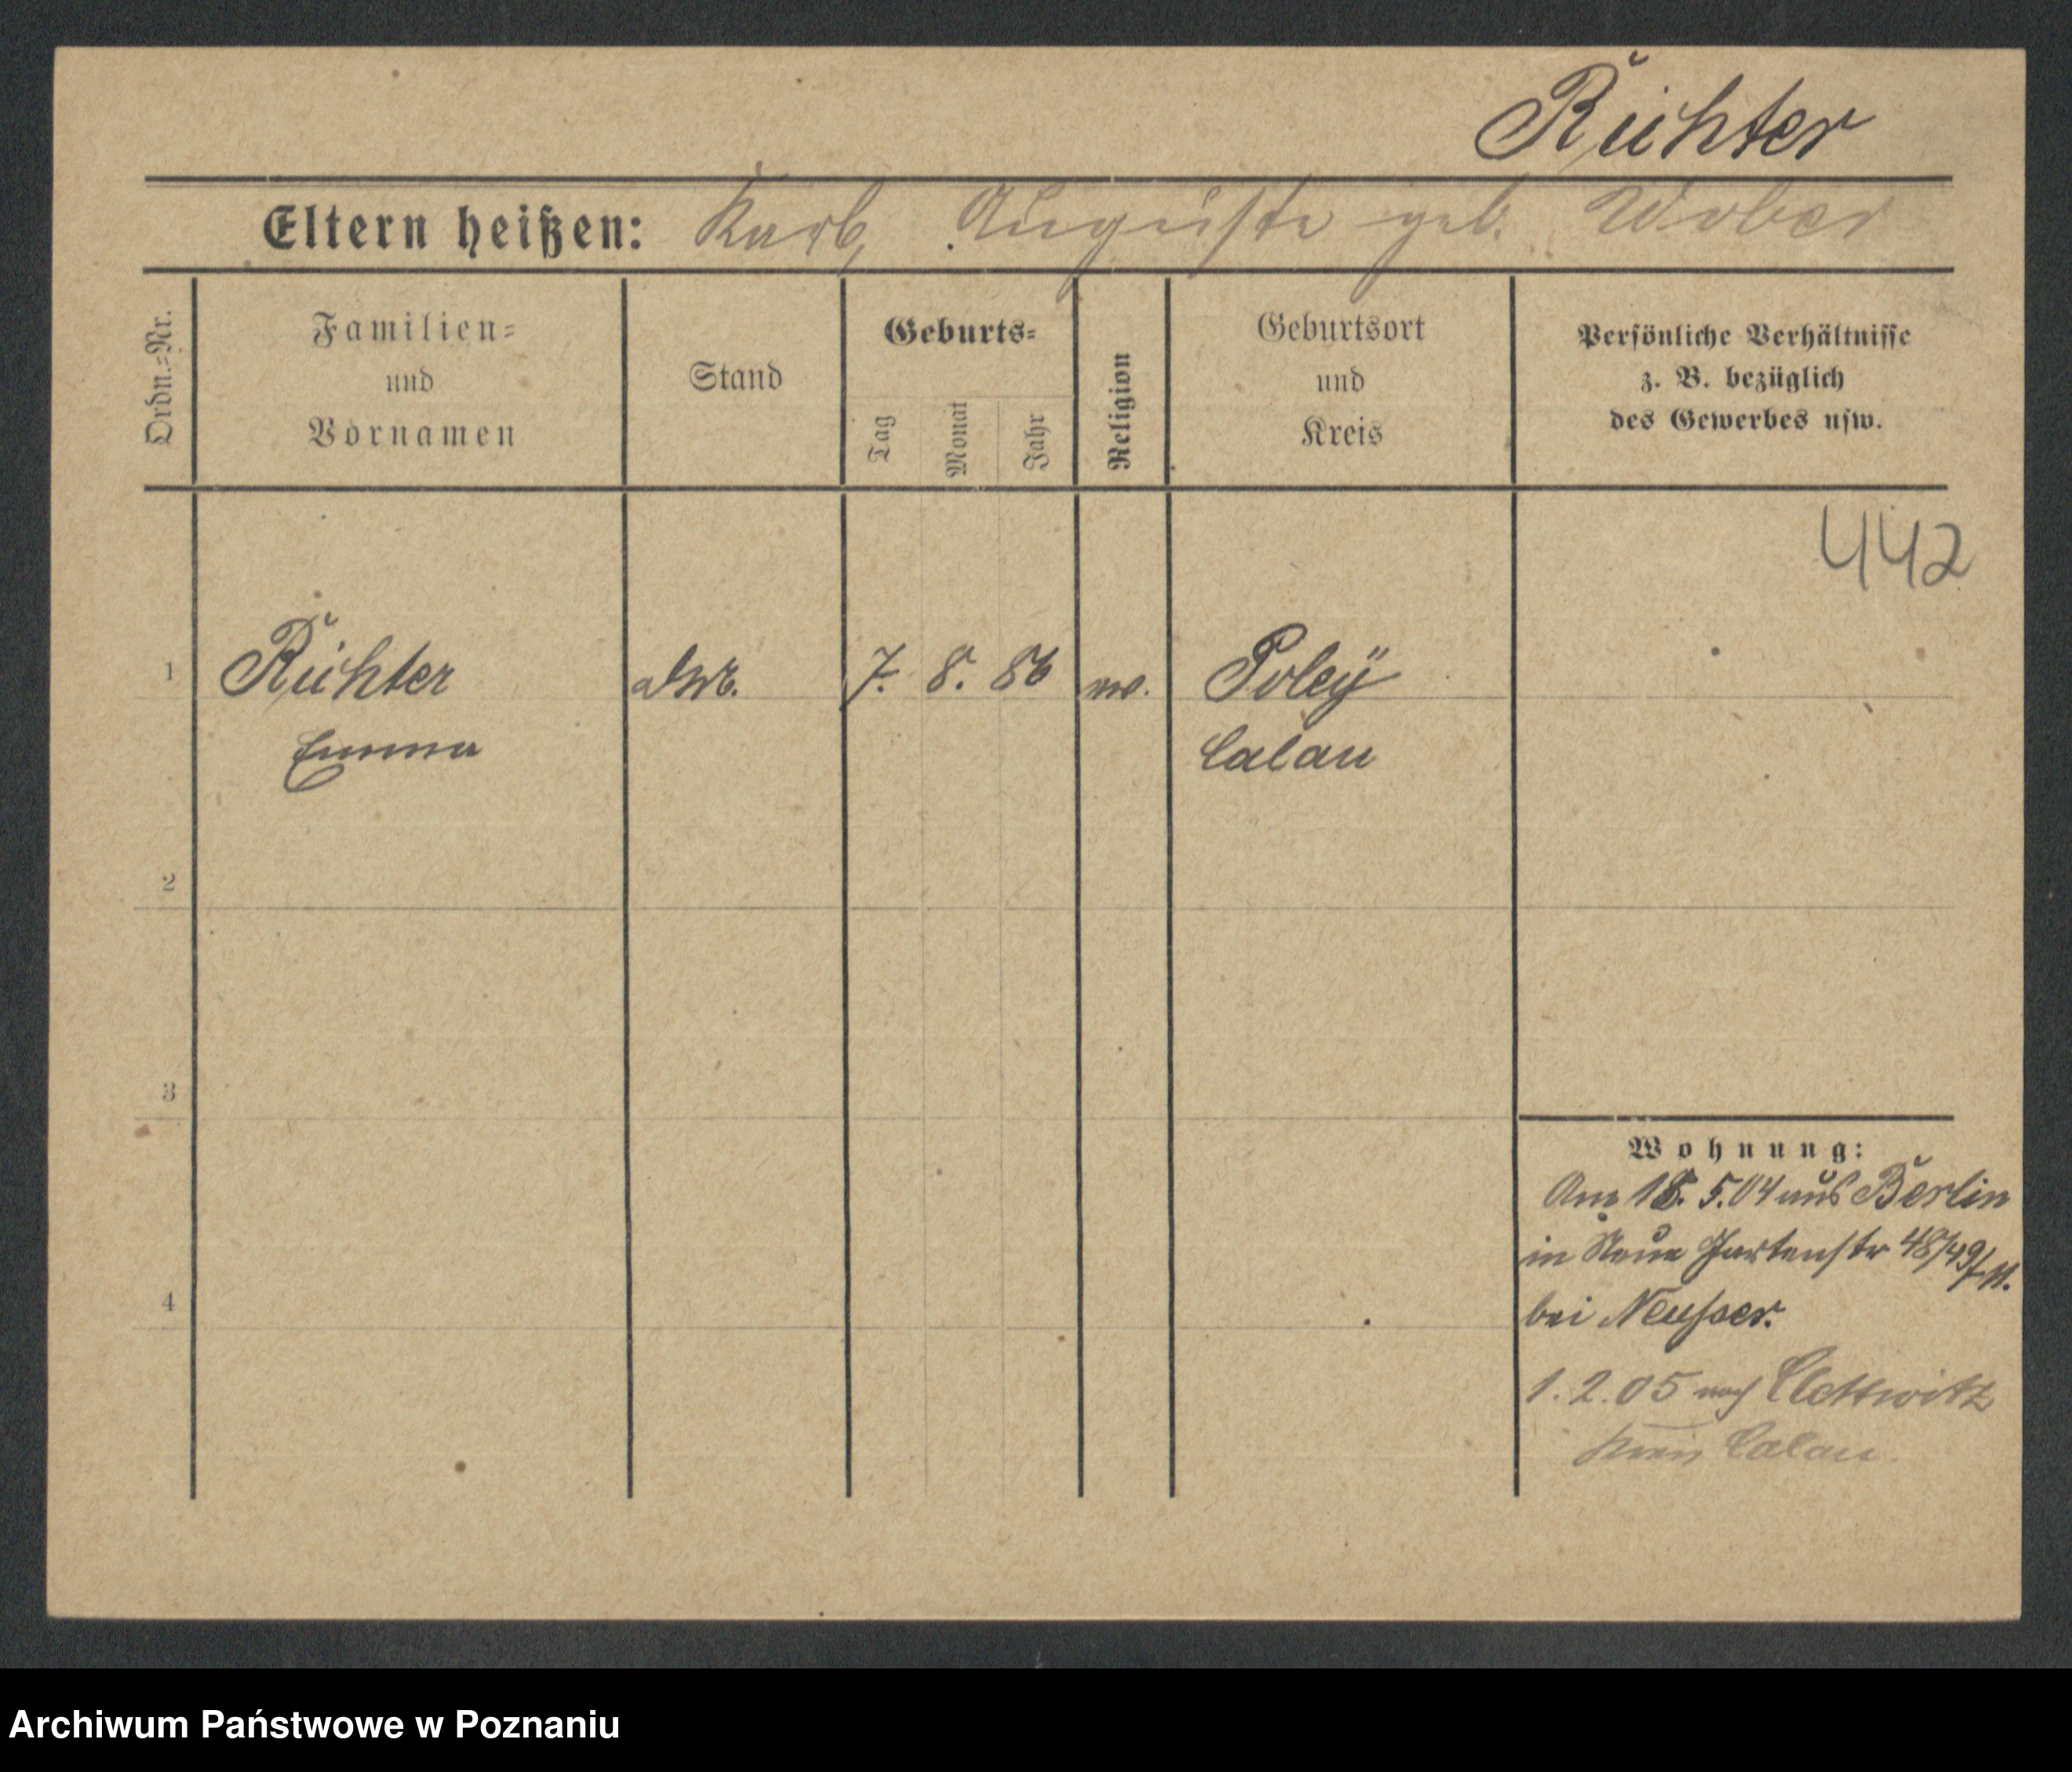 Richter
Eltern heißen: Karl, Auguste geb. Wober
Ordn.=Nr.
Familien=
und
Vornamen
Stand
Geburts=
Tag
Monat
Jahr
Religion
Geburtsort
und
Kreis
Persönliche Verhältnisse
z. B. bezüglich
des Gewerbes usw.
442
1 Richter 7. 8. 86 Poley
Emma Calau
2
3
4
Wohnung:
Am 18. 5. 04 aus Berlin
in Neue Gartenstr 48/49
bei
1. 2. 05 nach Clettwitz
Kreis Calau.
Archiwum Państwowe w Poznaniu